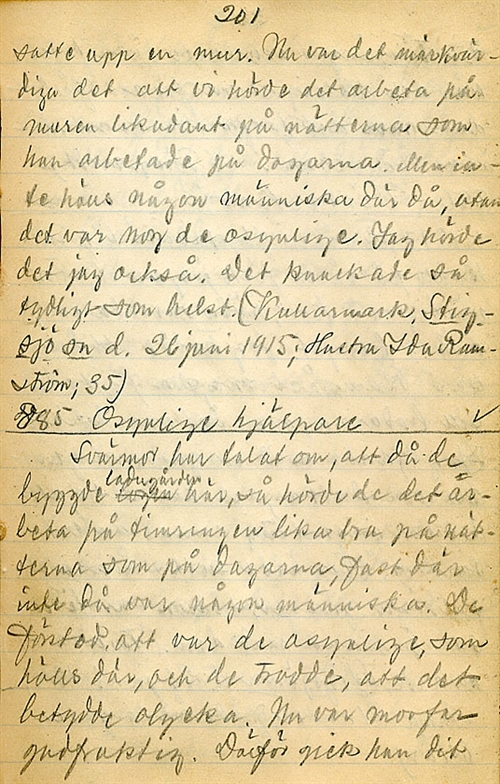 201
satte upp en mur. Nu var det märkvär-
diga det att vi hörde det arbeta på
muren likadant på nätterna som
han arbetade på dagarna. Men in-
te hölls någon människa där då, utan
det var nog de osynlige. Jag hörde
det jag också. Det knackade så
tydligt som helst. (Kullarmark, Stig-
sjö sn d. 26 juni 1915; Hustru Ida Ram-
ström; 35)
985 Osynlige hjälpare ✓
Svärmor har talat om, att då de
byggde ladugården här, så hörde de det ar-
beta på timringen lika bra på nät-
terna som på dagarna, fast där
inte då var någon människa. De
förstod, att var de osynlige, som
hölls där, och de trodde, att det
betydde olycka. Nu var morfar
gudfruktig. Därför gick han dit